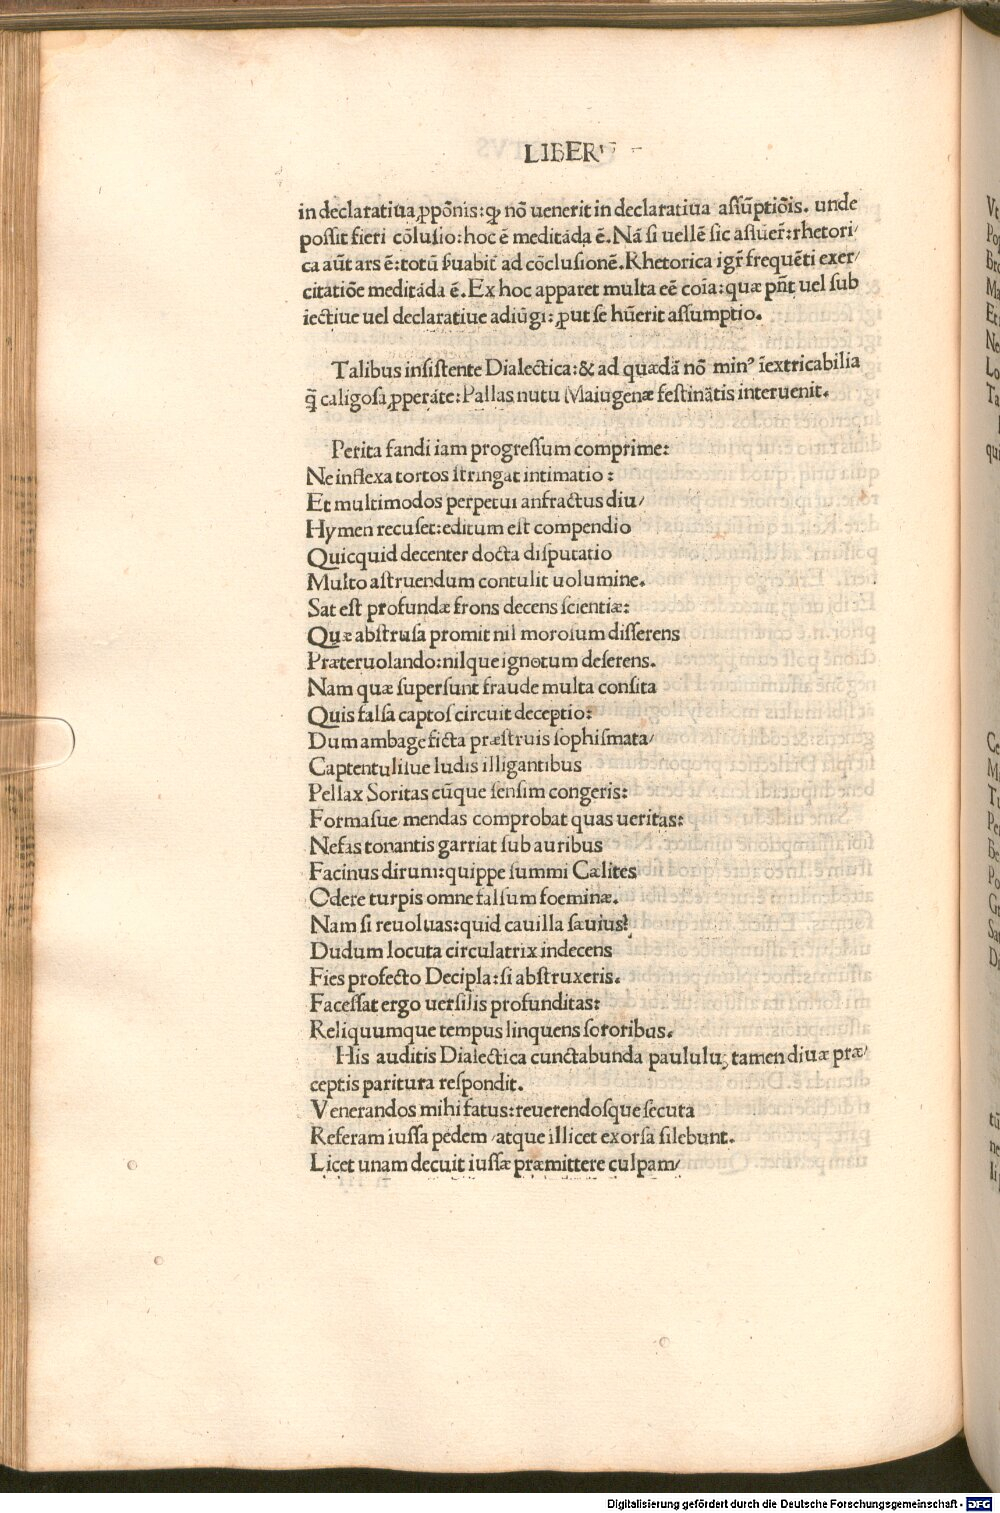 LIBER
in declaratiua ꝓpōnis: ꝙ nō uenerit in declaratiua assūptiōis. unde
possit fieri cōlusio: hoc ē meditāda ē. Nā si uellē sic asiuer̃: rhetori/
ca aūt ars ē: totū ẜuabit̃ ad cōclusionē. Rhetorica igr̃ frequēti exer/
citatiōe meditāda ē. Ex hoc apparet multa eē coīa: quæ pn̄t uel sub
iectiue uel declaratiue adiūgi: ꝓut se hūerit assumptio.
Talibus insistente Dialectica: & ad quædā nō minꝰ īextricabilia
q̄ꝫ caligosa ꝓperāte: Pallas nutu Maiugenæ festinātis interuenit.
Perita fandi iam progressum comprime:
Ne inflexa tortos stringat intimatio:
Et multimodos perpetui anfractus diu/
Hymen recuset: editum est compendio
Quicquid decenter docta disputatio
Multo astruendum contulit uolumine.
Sat est profundæ frons decens scientiæ:
Quæ abstrusa promit nil morosum disserens
Præteruolando: nilque ignotum deserens.
Nam quæ supersunt fraude multa consita
Quis falsa captos circuit deceptio:
Dum ambage ficta præstruis sophismata/
Captentulisue ludis illigantibus
Pellax Soritas cūque sensim congeris:
Formasue mendas comprobat quas ueritas:
Nefas tonantis garriat sub auribus
Facinus dirum: quippe summi Cælites
Odere turpis omne falsum foeminæ.
Nam si reuoluas: quid cauilla sæuius?
Dudum locuta circulatrix indecens
Fies profecto Decipla: si abstruxeris.
Facessat ergo uersilis profunditas:
Reliquumque tempus linquens sororibus.
His auditis Dialectica cunctabunda paululuꝫ tamen diuæ præ/
ceptis paritura respondit.
Venerandos mihi fatus: reuerendosque secuta
Referam iussa pedem/ atque illicet exorsa silebunt.
Licet unam decuit iussæ præmittere culpam/
Digitalisierung gefördert durch die Deutsche Forschungsgemeinschaft - DFG